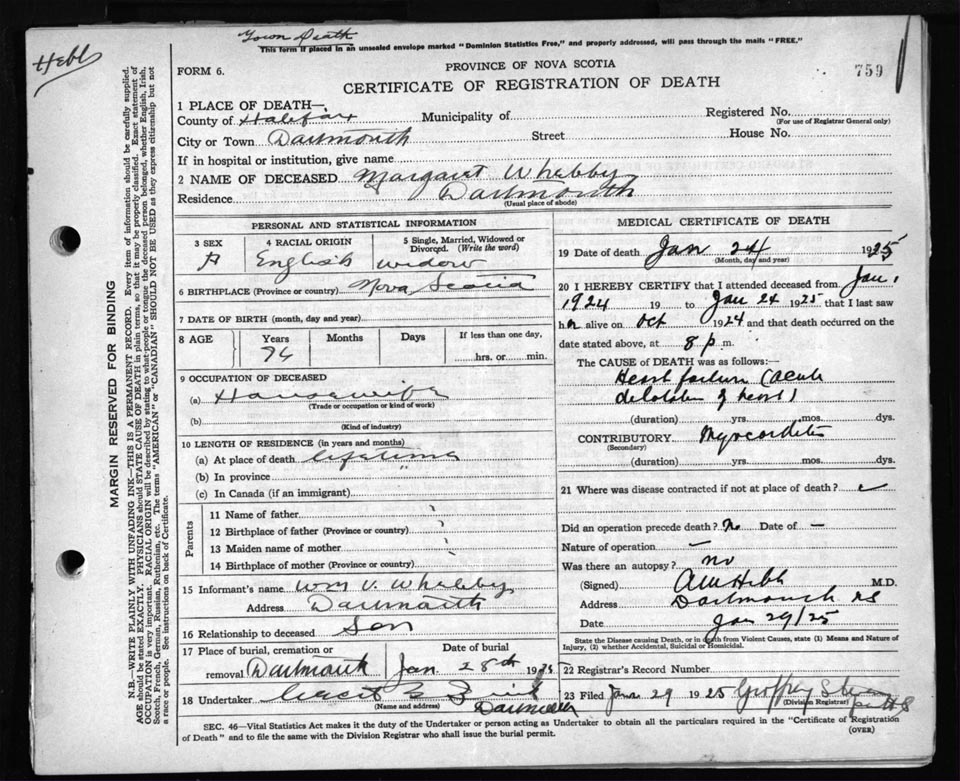 Town Death
This form if placed in an unsealed envelope marked "Dominion Statistics Free," and properly addressed, will pass through the mails "FREE."
Hebb
FORM 6.
PROVINCE OF NOVA SCOTIA
759
CERTIFICATE OF REGISTRATION OF DEATH
1 PLACE OF DEATH—
County of Halifax Municipality of Registered No.
(For use of Registrar General only)
City or Town Dartmouth Street House No.
If in hospital or institution, give name
2 NAME OF DECEASED Margaret Whebby
Residence Dartmouth
(Usual place of abode)
PERSONAL AND STATISTICAL INFORMATION
3 SEX 4 RACIAL ORIGIN 5 Single, Married, Widowed or Divorced. (Write the word)
English widow
6 BIRTHPLACE (Province or country) Nova Scotia
7 DATE OF BIRTH (month, day and year)
8 AGE Years Months Days If less than one day,
76 hrs. or min.
9 OCCUPATION OF DECEASED
(a) Housewife
(Trade or occupation or kind of work)
(b)
(Kind of industry)
10 LENGTH OF RESIDENCE (in years and months)
(a) At place of death lifetime
(b) In province
(c) In Canada (if an immigrant)
Parents
11 Name of father ?
12 Birthplace of father (Province or country) ?
13 Maiden name of mother ?
14 Birthplace of mother (Province or country) ?
15 Informant's name Wm V. Whebby
Address Dartmouth
16 Relationship to deceased Son
17 Place of burial, cremation or removal Dartmouth Date of burial Jan. 28th 1925
18 Undertaker
(Name and address) Dartmouth
MEDICAL CERTIFICATE OF DEATH
19 Date of death Jan 24 1925
(Month, day and year)
20 I HEREBY CERTIFY that I attended deceased from Jan 1
1924 19 to Jan 24 1925 that I last saw
her alive on Oct 1924 and that death occurred on the
date stated above, at 8 p m.
The CAUSE of DEATH was as follows:—
Heart failure (acute
dilatation of heart)
(duration) yrs. mos. dys.
CONTRIBUTORY Myocarditis
(Secondary)
(duration) yrs. mos. dys.
21 Where was disease contracted if not at place of death?
Did an operation precede death? No Date of —
Nature of operation —
Was there an autopsy? no
(Signed) A M Hebb M.D.
Address Dartmouth NS
Date Jan 29/25
State the Disease causing Death, or in death from Violent Causes, state (1) Means and Nature of
Injury, (2) whether Accidental, Suicidal or Homicidal.
22 Registrar's Record Number
23 Filed Jan 29 1925 Geoffrey
(Division Registrar)
SEC. 46—Vital Statistics Act makes it the duty of the Undertaker or person acting as Undertaker to obtain all the particulars required in the "Certificate of Registration
of Death" and to file the same with the Division Registrar who shall issue the burial permit.
(OVER)
MARGIN RESERVED FOR BINDING
N.B.—WRITE PLAINLY WITH UNFADING INK—THIS IS A PERMANENT RECORD. Every item of information should be carefully supplied.
AGE should be stated EXACTLY. PHYSICIANS should STATE CAUSE OF DEATH in plain terms, so that it may be properly classified. Exact statement of
OCCUPATION is very important. RACIAL ORIGIN will be described by stating to what people or tongue the deceased person belonged, whether English, Irish,
Scotch, French, German, Russian, Ruthenian, etc. The terms "AMERICAN" or "CANADIAN" SHOULD NOT BE USED as they express citizenship but not
a race or people. See instructions on back of Certificate.